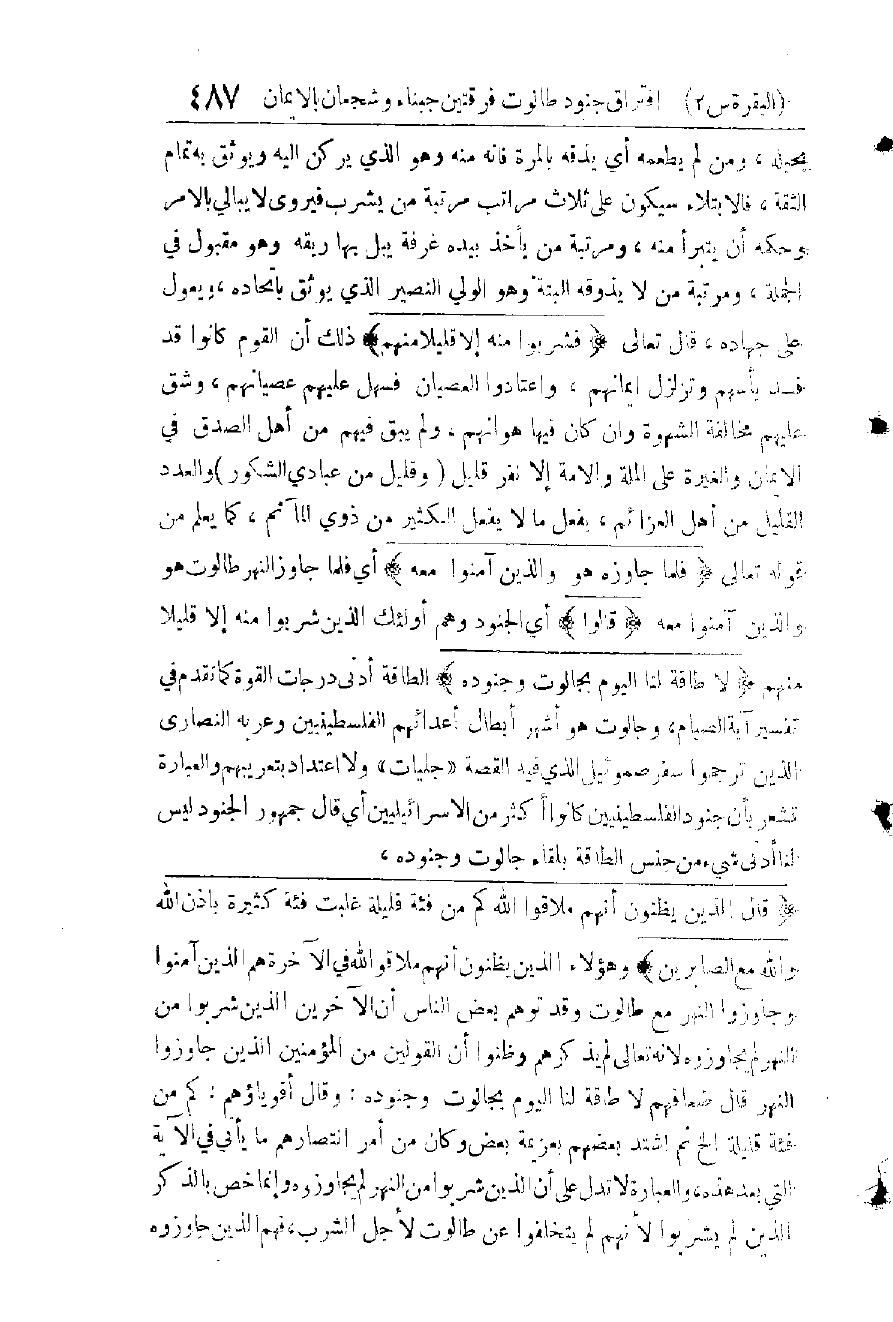 (البقرة س ٢) افتراق جنود طالوت فرقتين جبناء وشجعان بالايمان ٤٨٧
بحبله ، ومن لم يطعمه أي يذقه بالمرة فانه منه وهو الذي يركن اليه ويوثق به تمام
الثقة ، فالابتلاء سيكون على ثلاث مراتب مرتبة من يشرب فيروى لا يبالي بالامر
وحكمه أن يتبرأ منه ، ومرتبة من يأخذ بيده غرفة يبل بها ريقه وهو مقبول في
الجملة ، ومرتبة من لا يذوقه البتة وهو الولي النصير الذي يوثق باتحاده ، ويعول
على جهاده ، قال تعالى ﴿ فشربوا منه إلا قليلا منهم ﴾ ذلك أن القوم كانوا قد
فسد بأسهم وتزلزل ايمانهم ، واعتادوا العصيان فسهل عليهم عصيانهم ، وشق
عليهم مخالفة الشهوة وان كان فيها هوانهم ، ولم يبق فيهم من أهل الصدق في
الايمان والغيرة على الملة والامة إلا نفر قليل ( وقليل من عبادي الشكور ) والعدد
القليل من أهل العزائم ، يفعل ما لا يفعل الكثير من ذوي المآثم ، كما يعلم من
قوله تعالى ﴿ فلما جاوزه هو والذين آمنوا معه ﴾ أي فلما جاوز النهر طالوت هو
والذين آمنوا معه ﴿ قالوا ﴾ أي الجنود وهم أولئك الذين شربوا منه إلا قليلا
منهم ﴿ لا طاقة لنا اليوم بجالوت وجنوده ﴾ الطاقة أدنى درجات القوة كما تقدم في
تفسير آية الصيام ، وجالوت هو أشهر أبطال أعدائهم الفلسطينيين وعربه النصارى
الذين ترجموا سفر صموئيل الذي فيه القصة «جليات» ولا اعتداد بتعريبهم والعبارة
تشعر بأن جنود الفلسطينيين كانوا أكثر من الاسرائيليين أي قال جمهور الجنود ليس
لنا أدنى شيء من جنس الطاقة بلقاء جالوت وجنوده ،
﴿ قال الذين يظنون أنهم ملاقوا الله كم من فئة قليلة غلبت فئة كثيرة باذن الله
والله مع الصابرين ﴾ وهؤلاء الذين يظنون أنهم ملاقو الله في الآخرة هم الذين آمنوا
وجاوزوا النهر مع طالوت وقد توهم بعض الناس أن الآخرين الذين شربوا من
النهر لم يجاوزوه لانه تعالى لم يذكرهم وظنوا أن القولين من المؤمنين الذين جاوزوا
النهر قال ضعافهم لا طاقة لنا اليوم بجالوت وجنوده : وقال أقوياؤهم : كم من
فئة قليلة الخ ثم اشتد بعضهم بعزيمة بعض وكان من أمر انتصارهم ما يأتي في الآية
التي بعد هذه ، والعبارة لا تدل على أن الذين شربوا من النهر لم يجاوزوه وإنما خص بالذكر
الذين لم يشربوا لأنهم لم يتخلفوا عن طالوت لأجل الشرب ، فهم الذين جاوزوه